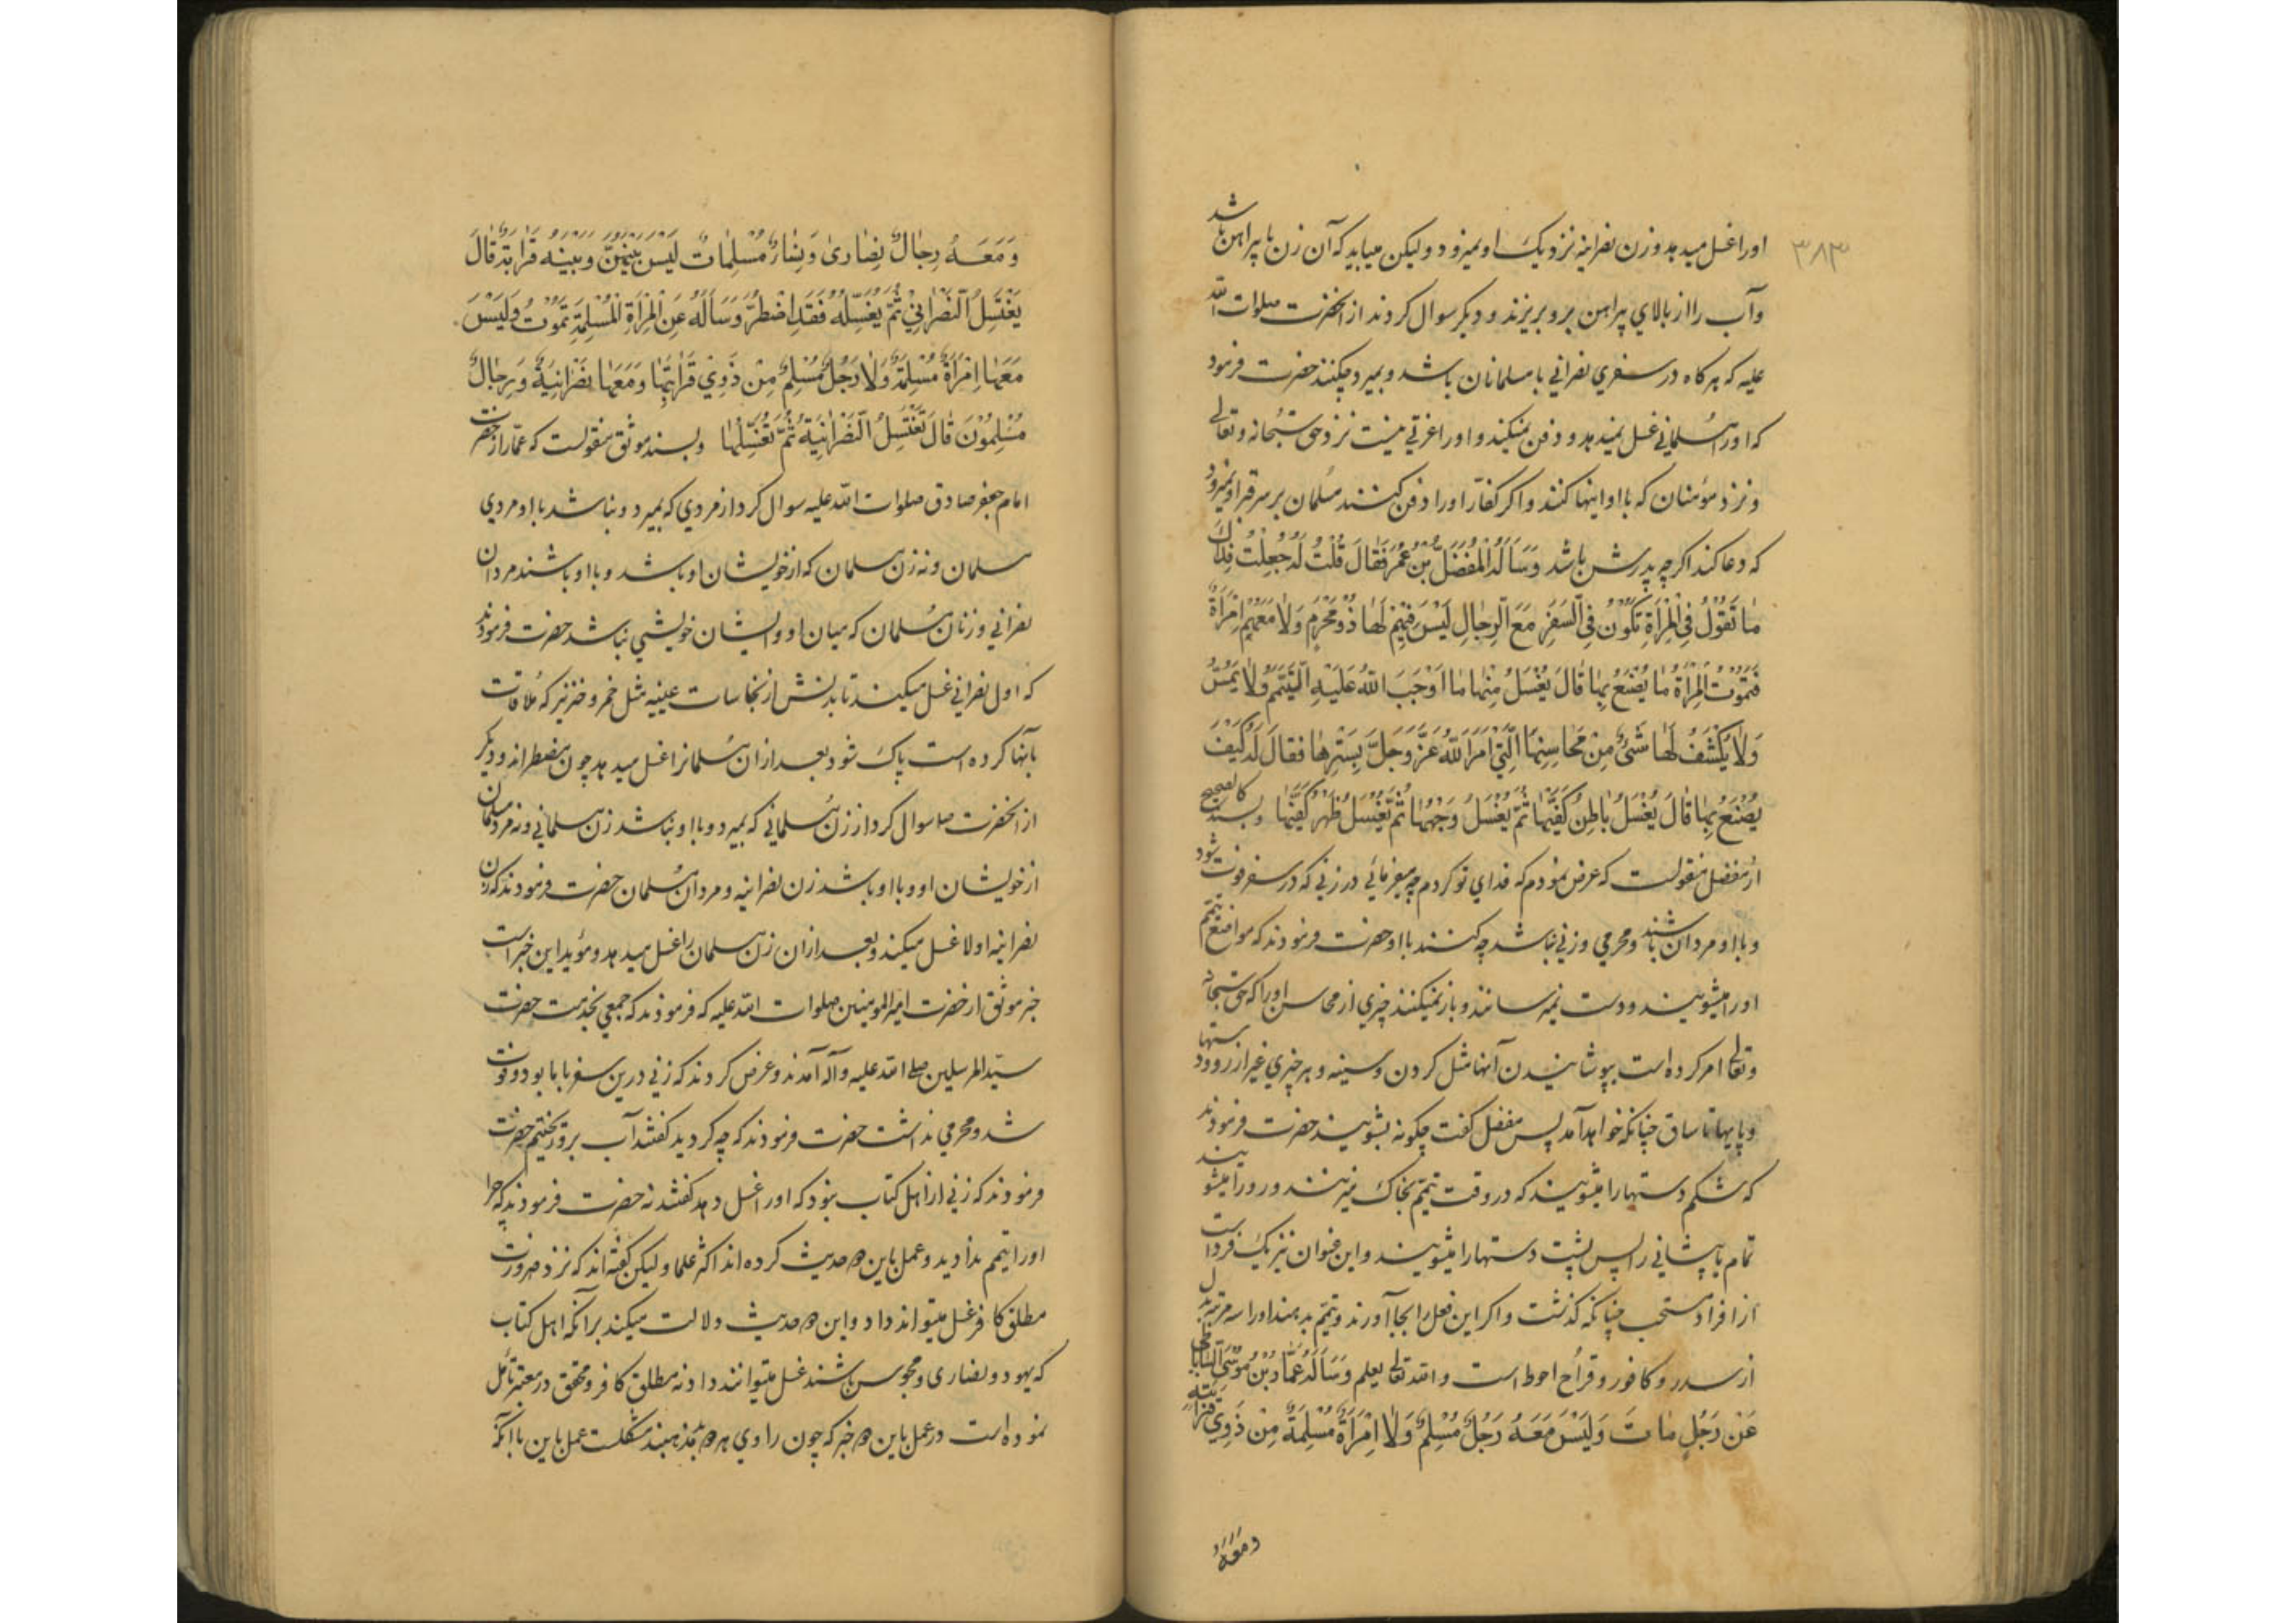 ۳۸۳
اورا غسل میدهد و زن نصرانیه نزدیک او نمیرود ولیکن میباید که آن زن با پیراهن باشد
وآب را از بالاي پیراهن برو بریزند و دیکر سوال کردند از انحضرت صلوات الله
علیه که هرکاه در سفري نصراني با مسلمانان باشد و بمیرد چکنند حضرت فرمود
که اورا مسلماني غسل نمیدهد و دفن نمیکند و اورا عزتي نیست نزد حق سبحانه و تعالی
و نزد مؤمنان که با او اینها کنند و اکر کفار اورا دفن کنند مسلمان بر سر قبر او نمیرود
که دعا کند اکرچه پدرش باشد وَسَاَلَهُ الْمُفَضَّلُ بْنُ عُمَرَ فَقَالَ قُلْتُ لَهُ جُعِلْتُ فِدَاكَ
مٰا تَقُوْلُ فِي الْمَرْأَةِ تَكُوْنُ فِي السَّفَرِ مَعَ الرِّجٰالِ لَيْسَ فِيْهِمْ لَهٰا ذُوْمَحْرَمٍ وَلٰا مَعَهُمْ اِمْرَأَةٌ
فَتَمُوْتُ الْمَرْأَةُ مٰا يُصْنَعُ بِهٰا قٰالَ يُغْسَلُ مِنْهٰا مٰا اَوْجَبَ اللهُ عَلَيْهِ التَّيَمُّمَ وَلٰا يُمَسُّ
وَلٰا يُكْشَفُ لَهٰا شَئٌ مِنْ مَحٰاسِنِهَا الَّتِيْ اَمَرَ اللهُ عَزَّ وَجَلَّ بِسَتْرِهٰا فَقٰالَ لَهُ كَيْفَ
يُصْنَعُ بِهٰا قٰالَ يُغْسَلُ بٰاطِنُ كَفَّيْهٰا ثُمَّ يُغْسَلُ وَجْهُهٰا ثُمَّ يُغْسَلُ ظَهْرُ كَفَّيْهٰا وبسند کالصحیح
از مفضل منقولست که عرض نمودم که فداي تو کردم چه میفرمائي در زني که در سفر فوت شود
و با او مردان باشند و محرمي و زني نباشد چه کنند با او حضرت فرمودند که مواضع تیمم
اورا میشویند و دست نمیرسانند و باز نمیکنند چیزي از محاسن اورا که حق سبحانه
وتعالی امر کرده است بپوشانیدن آنها مثل کردن و سینه و هر چیزي غیر از رو و دستها
و پایها تا ساق چنانکه خواهد آمد پس مفضل کفت چکونه بشویند حضرت فرمودند
که شکم دستها را میشویند که در وقت تیمم بخاک میزنند و رو را میشویند
تمام یا پیشاني را پس پشت دستها را میشویند و این عنوان نیز یک فرد است
از افراد مستحب چنانکه کذشت و اکر این فعل را بجا آورند و تیمم بدهند اورا سه مرتبه بدل
از سدر و کافور و قراح احوط است والله تعالی یعلم وَسَاَلَهُ عَمّٰارُ بْنُ مُوْسَى السّٰابٰاطِي
عَنْ رَجُلٍ مٰاتَ وَلَيْسَ مَعَهُ رَجُلٌ مُسْلِمٌ وَلٰا اِمْرَأَةٌ مُسْلِمَةٌ مِنْ ذَوِيْ قَرٰابَتِهِ
ومعه
وَمَعَهُ رِجٰالٌ نَصٰارىٰ وَنِسٰاءٌ مُسْلِمٰاتٌ لَيْسَ بَيْنَهُنَّ وَبَيْنَهُ قَرٰابَةٌ قٰالَ
يَغْتَسِلُ النَّصْرٰانِيُّ ثُمَّ يُغَسِّلُهُ فَقَدِ اضْطُرَّ وَسَاَلَهُ عَنِ الْمَرْأَةِ الْمُسْلِمَةِ تَمُوْتُ وَلَيْسَ
مَعَهٰا اِمْرَأَةٌ مُسْلِمَةٌ وَلٰا رَجُلٌ مُسْلِمٌ مِنْ ذَوِيْ قَرٰابَتِهٰا وَمَعَهٰا نَصْرٰانِيَةٌ وَرِجٰالٌ
مُسْلِمُوْنَ قٰالَ تَغْتَسِلُ النَّصْرٰانِيَةُ ثُمَّ تُغَسِّلُهٰا وبسند موثق منقولست که عمار از حضرت
امام جعفر صادق صلوات الله علیه سوال کرد از مردي که بمیرد و نباشد با او مردي
مسلمان و نه زن مسلمان که از خویشان او باشد و با او باشند مردان
نصراني و زنان مسلمان که میان او و ایشان خویشي نباشد حضرت فرمودند
که اول نصراني غسل میکند تا بدنش از نجاسات عینیه مثل خمر و خنزیر که ملاقات
بآنها کرده است پاک شود بعد از ان مسلمانرا غسل میدهد چون مضطراند و دیکر
از انحضرت ص سوال کرد از زن مسلماني که بمیرد و با او نباشد زن مسلماني و نه مرد مسلمان
از خویشان او و با او باشد زن نصرانیه و مردان مسلمان حضرت فرمودند که زن
نصرانیه اولا غسل میکند و بعد از ان زن مسلمان را غسل میدهد و مؤید این خبر است
خبر موثق از حضرت امیرالمومنین صلوات الله علیه که فرمودند که جمعي بخدمت حضرت
سید المرسلین صلی الله علیه وآله آمدند و عرض کردند که زني درین سفر با ما بود و فوت
شد و محرمي نداشت حضرت فرمودند که چه کردید کفتند آب برو ریختیم حضرت
فرمودند که زني از اهل کتاب نبود که اورا غسل دهد کفتند نه حضرت فرمودند که چرا
اورا تیمم ندادید و عمل باین دو حدیث کرده اند اکثر علما ولیکن کفته اند که نزد ضرورت
مطلق کافر غسل میتواند داد و این دو حدیث دلالت میکند بر آنکه اهل کتاب
که یهود و نصاری و مجوس باشند غسل میتوانند داد نه مطلق کافر و محقق در معتبر تأمل
نموده است در عمل باین دو خبر که چون راوي هر دو بد مذهبند مشکلست عمل باین با آنکه